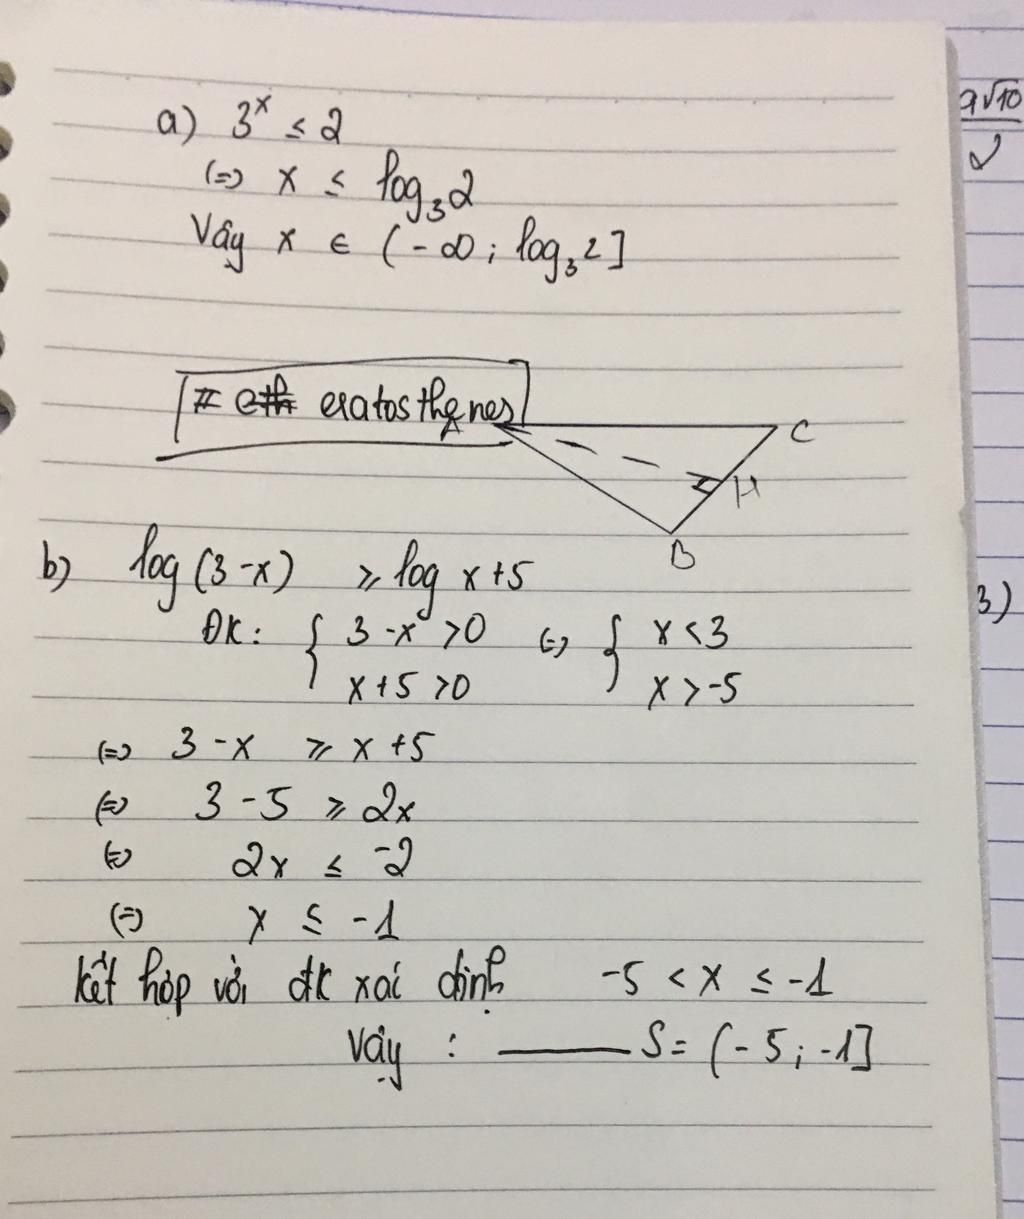 a) 3ˣ ≤ 2
(=) x ≤ log₃2
Vậy x ∈ (-∞; log₃2]
# eratosthenes
A C
H
B
b) log(3-x) ≥ log x+5
ĐK: { 3-x >0 (=) { x <3
x+5 >0 x > -5
(=) 3-x ≥ x+5
(=) 3-5 ≥ 2x
(=) 2x ≤ -2
(=) x ≤ -1
kết hợp với đk xái định -5 < x ≤ -1
Vậy : —— S= (-5; -1]
a√10
2
3)